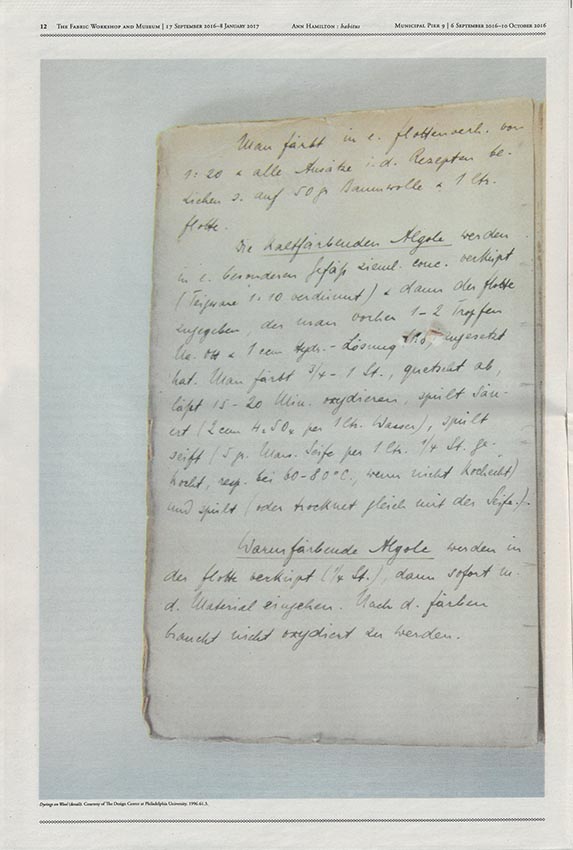 12 The Fabric Workshop and Museum | 17 September 2016–8 January 2017 Ann Hamilton : habitus Municipal Pier 9 | 6 September 2016–10 October 2016
Man färbt in e. Flottenverh. von
1:20 & alle Ansätze i. d. Rezepten be-
ziehen s. auf 50 gr Baumwolle & 1 ltr.
Flotte.
Die kaltfärbenden Algole werden
in e. besonderen Gefäß zieml. conc. verküpt
(Teigware 1:10 verdünnt) & dann der Flotte
zugegeben, der man vorher 1–2 Tropfen
& 1 ccm Hydr.-Lösung zugesetzt
hat. Man färbt 3/4–1 St., quetscht ab,
läßt 15–20 Min. oxydieren, spült säu-
ert (2 ccm per 1 ltr. Wasser), spült
seift (5 gr. Mars. Seife per 1 ltr. 1/4 St. ge-
kocht, resp. bei 60–80°C., wenn nicht kochecht)
und spült (oder trocknet gleich mit der Seife.)
Warmfärbende Algole werden in
der Flotte verküpt (1/4 St.), dann sofort m.
d. Material eingehen. Nach d. Färben
braucht nicht oxydiert zu werden.
Dyeings on Wool (detail). Courtesy of The Design Center at Philadelphia University, 1996.61.3.